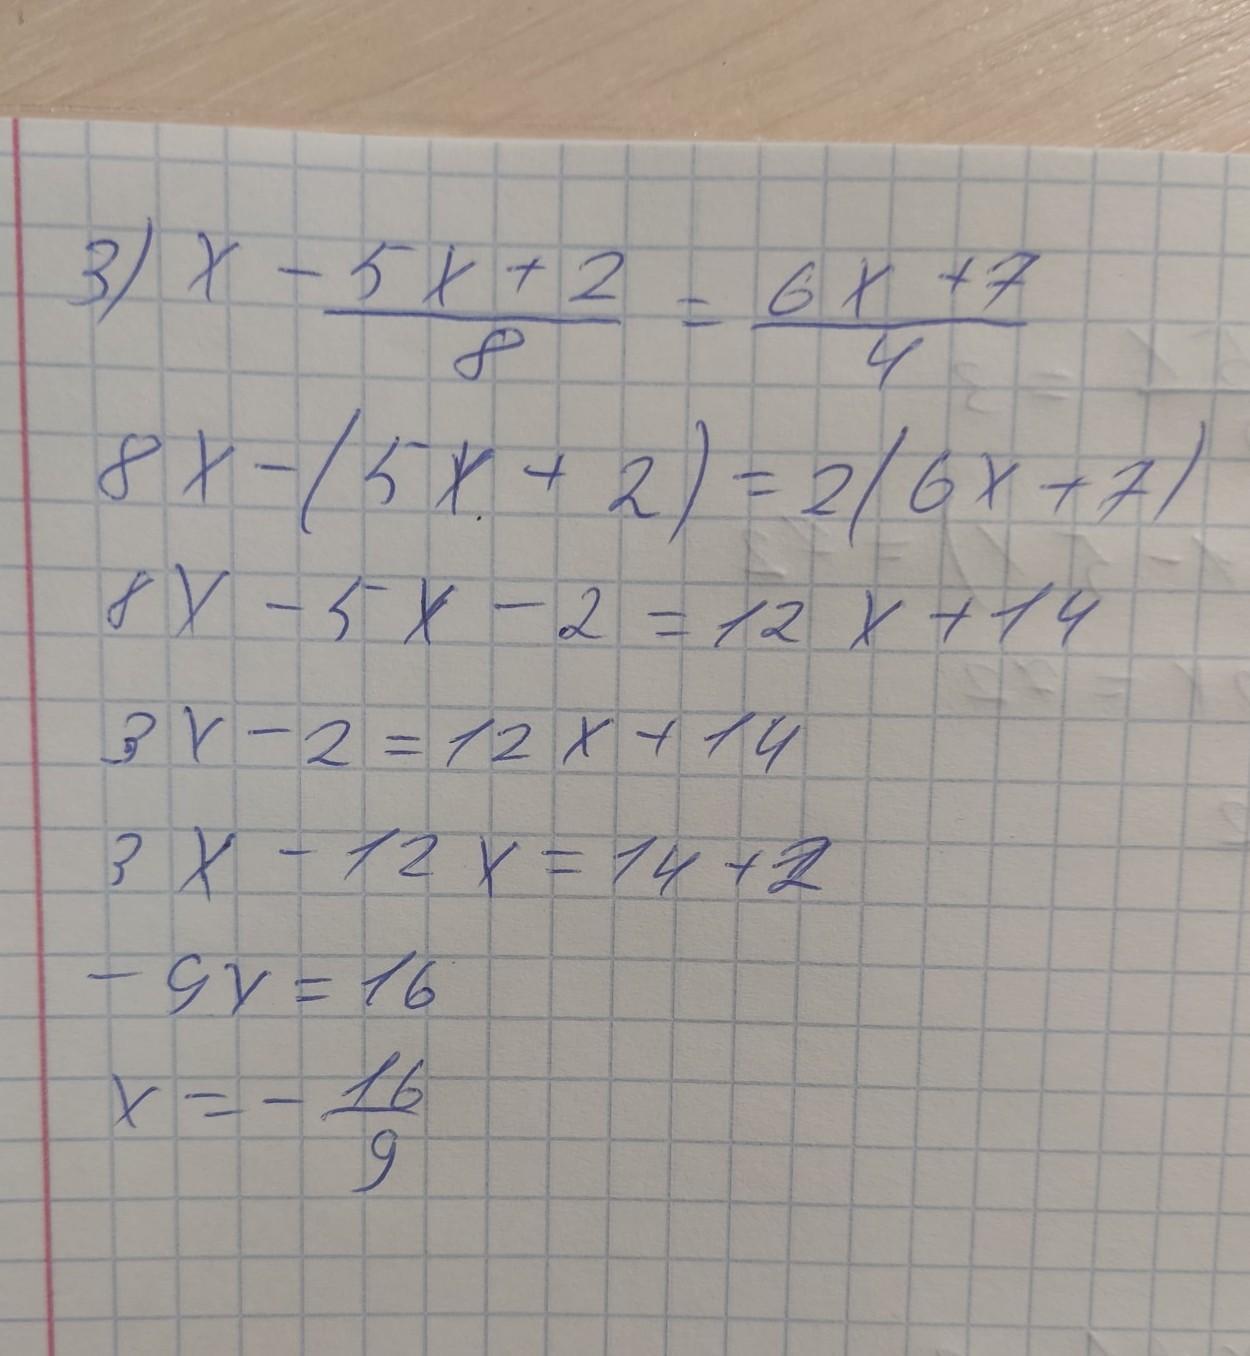 3) x - (5x + 2)/8 = (6x + 7)/4
8x - (5x + 2) = 2(6x + 7)
8x - 5x - 2 = 12x + 14
3x - 2 = 12x + 14
3x - 12x = 14 + 2
- 9x = 16
x = - 16/9